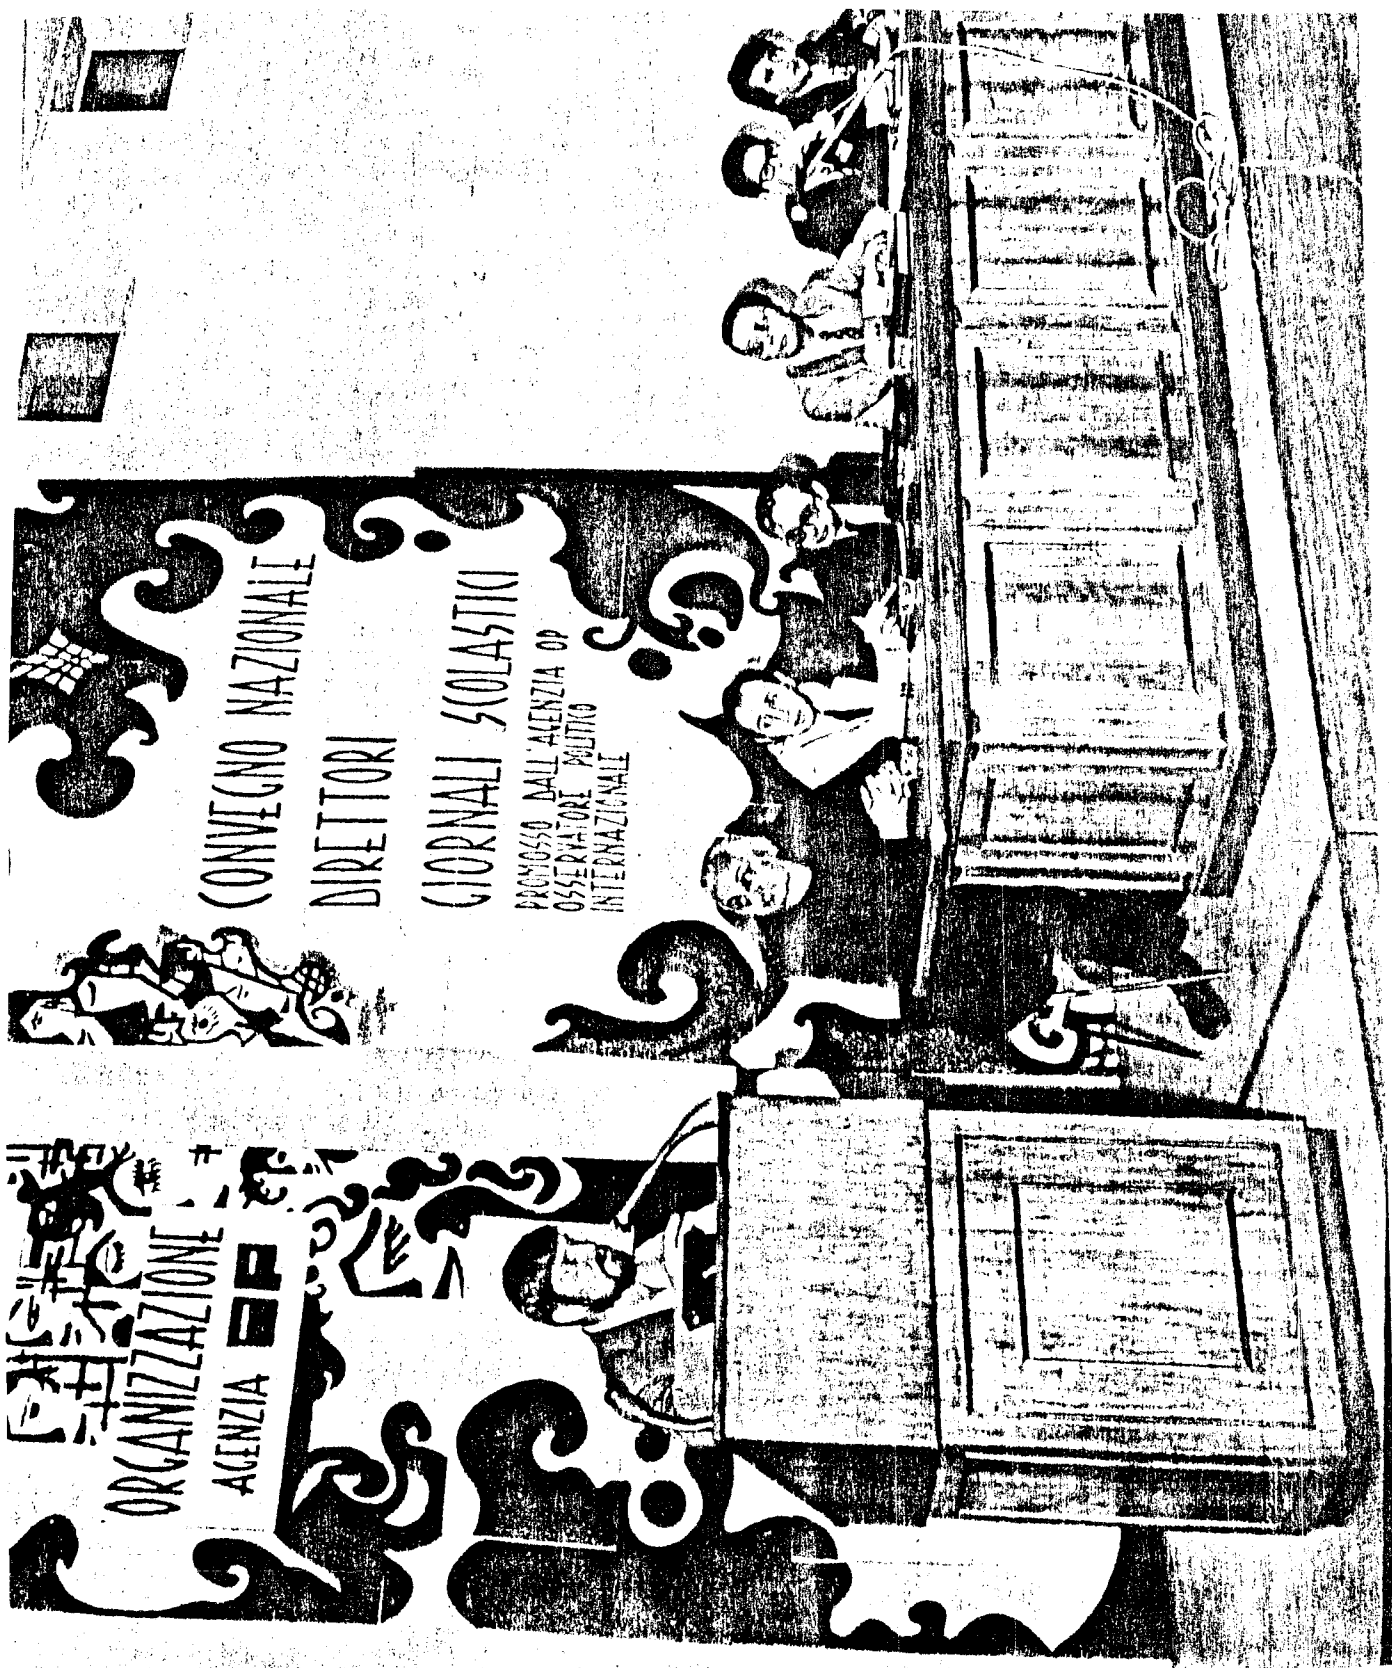 ORGANIZZAZIONE
AGENZIA OP
CONVEGNO NAZIONALE
DIRETTORI
GIORNALI SCOLASTICI
PROMOSSO DALL'AGENZIA OP
OSSERVATORE POLITICO
INTERNAZIONALE